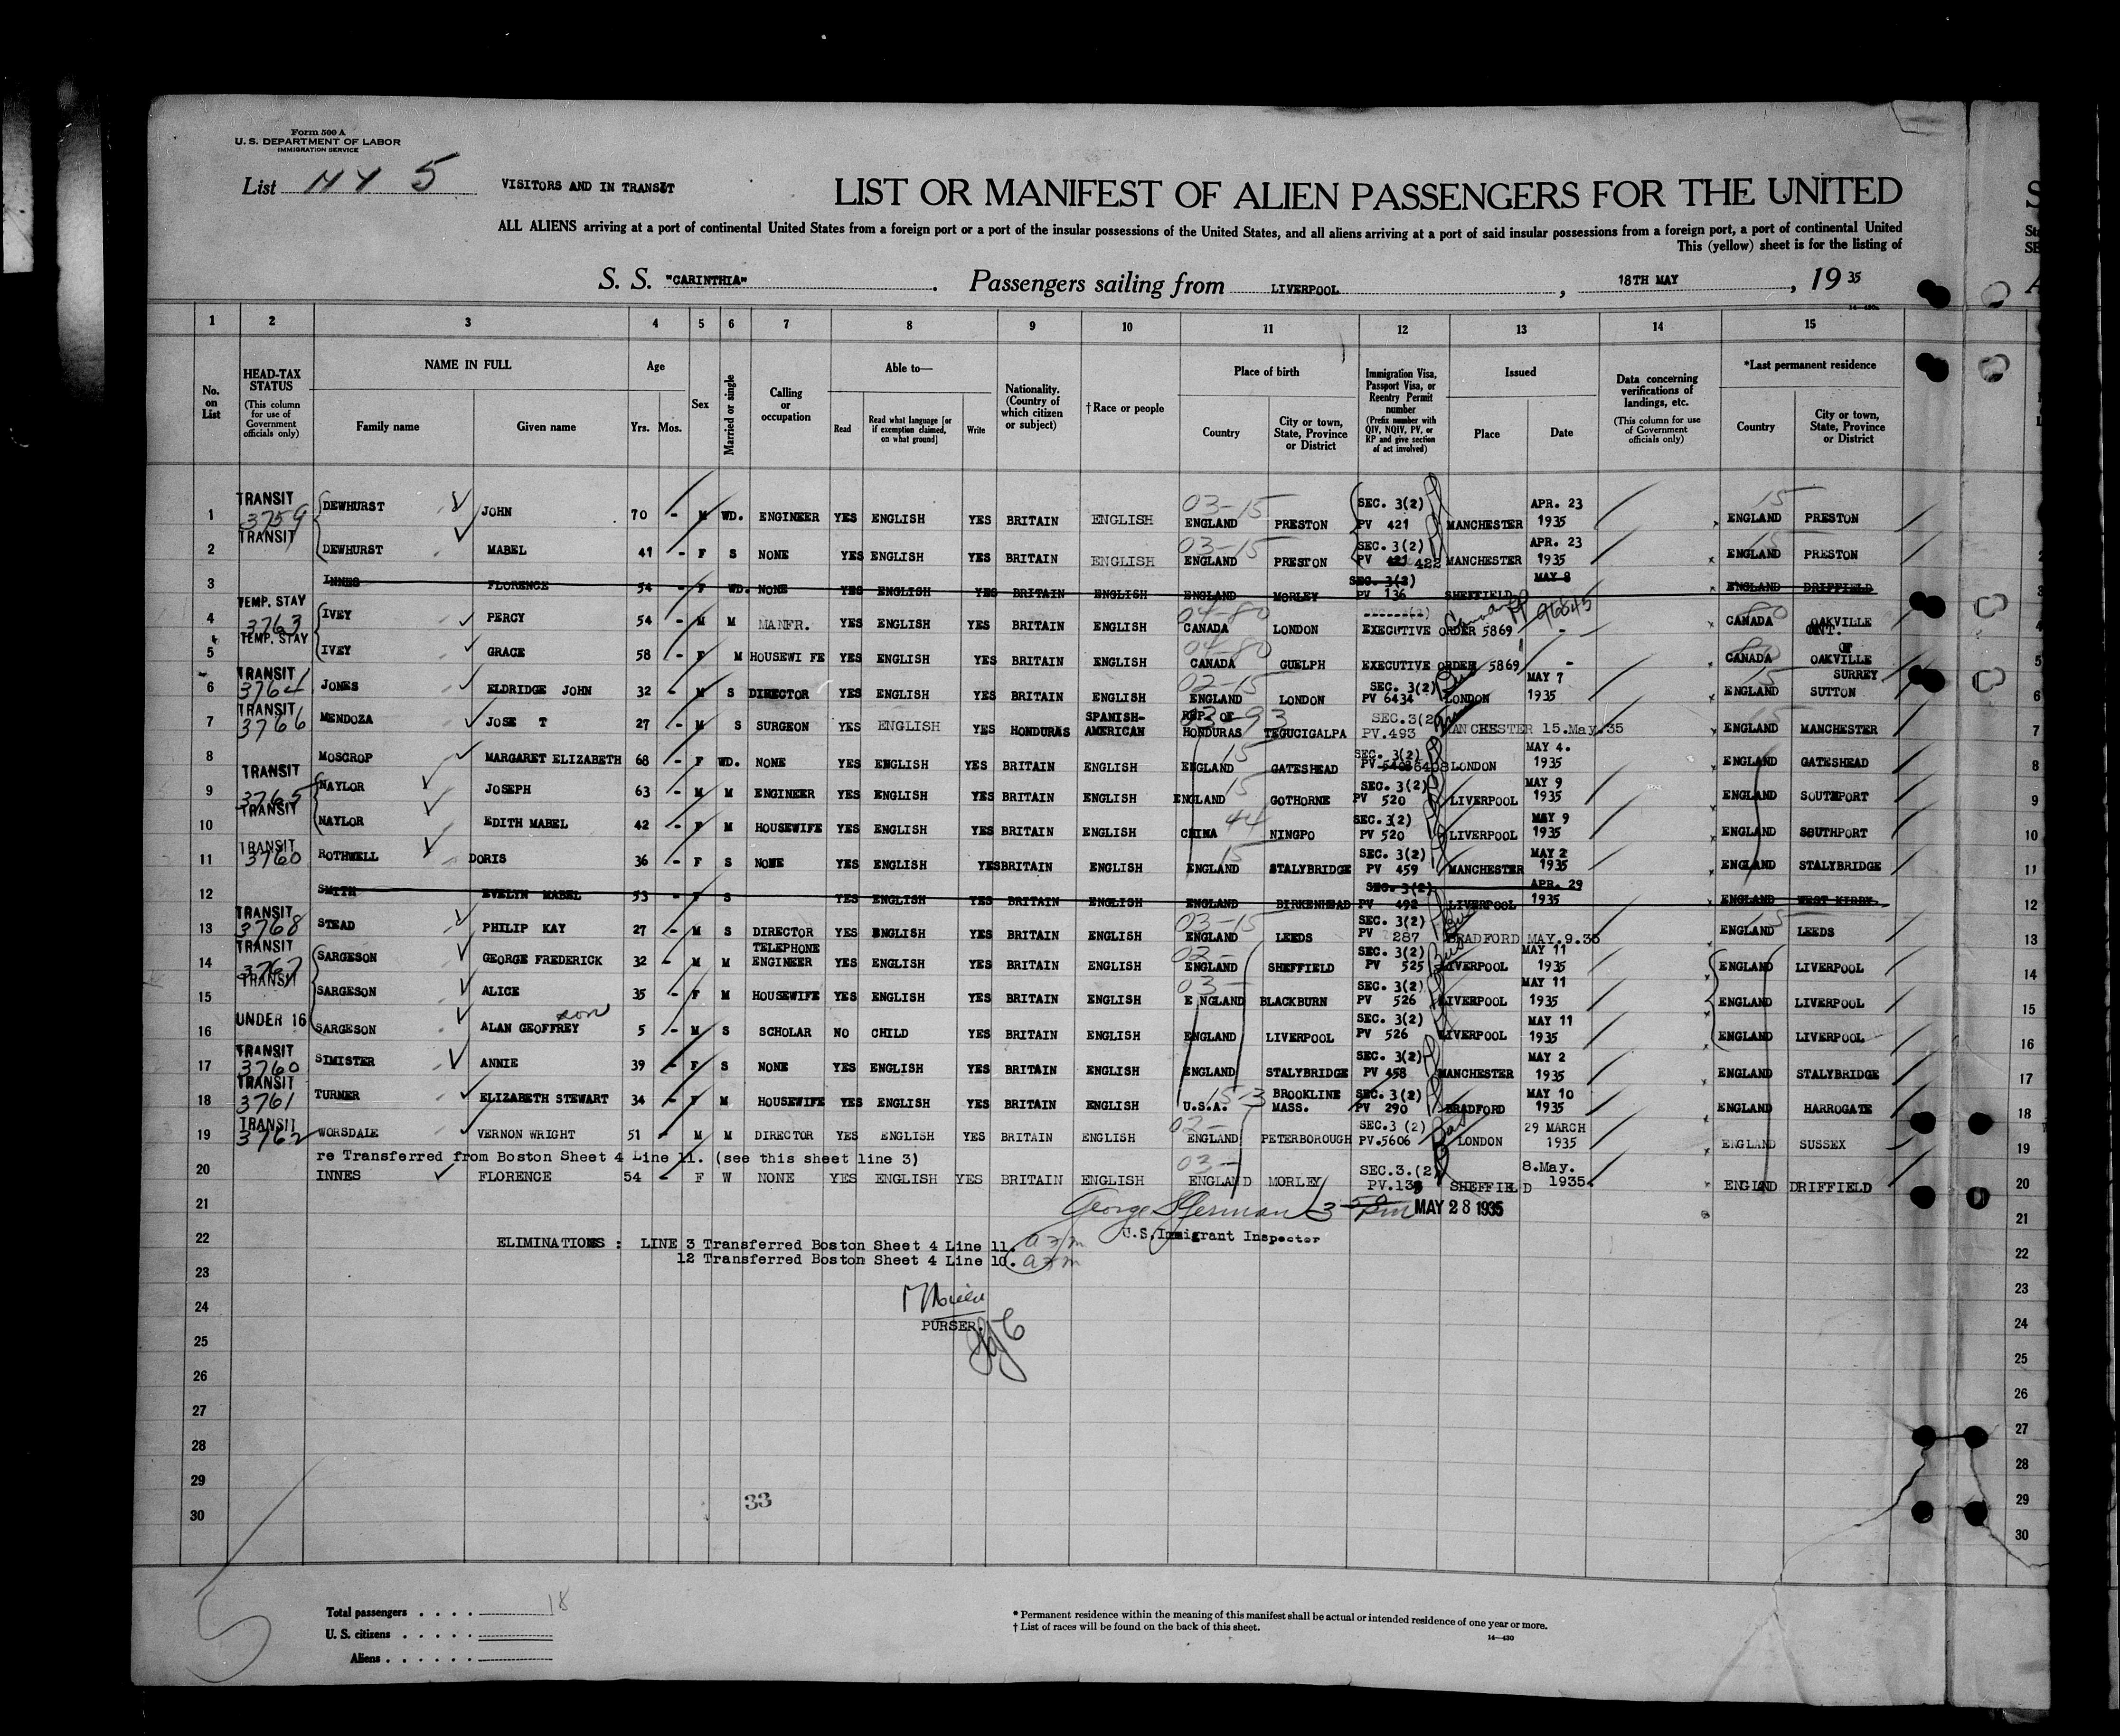 Form 500 A
U. S. DEPARTMENT OF LABOR
IMMIGRATION SERVICE
List NY 5 VISITORS AND IN TRANSIT
LIST OR MANIFEST OF ALIEN PASSENGERS FOR THE UNITED
ALL ALIENS arriving at a port of continental United States from a foreign port or a port of the insular possessions of the United States, and all aliens arriving at a port of said insular possessions from a foreign port, a port of continental United
This (yellow) sheet is for the listing of
S. S. "CARINTHIA". Passengers sailing from LIVERPOOL, 18TH MAY, 19 35
1 2 3 4 5 6 7 8 9 10 11 12 13 14 15
No. on List
HEAD-TAX STATUS (This column for use of Government officials only)
NAME IN FULL Family name Given name
Age Yrs. Mos.
Sex
Married or single
Calling or occupation
Able to— Read Read what language [or if exemption claimed, on what ground] Write
Nationality. (Country of which citizen or subject)
†Race or people
Place of birth Country City or town, State, Province or District
Immigration Visa, Passport Visa, or Reentry Permit number (Prefix number with QIV, NQIV, PV, or RP and give section of act involved)
Issued Place Date
Data concerning verifications of landings, etc. (This column for use of Government officials only)
*Last permanent residence Country City or town, State, Province or District
1 TRANSIT 3759 DEWHURST JOHN 70 - M WD. ENGINEER YES ENGLISH YES BRITAIN ENGLISH 03-15 ENGLAND PRESTON SEC. 3(2) PV 421 MANCHESTER APR. 23 1935 15 ENGLAND PRESTON
2 TRANSIT DEWHURST MABEL 41 - F S NONE YES ENGLISH YES BRITAIN ENGLISH 03-15 ENGLAND PRESTON SEC. 3(2) PV 421 422 MANCHESTER APR. 23 1935 15 ENGLAND PRESTON 2
3 INNES FLORENCE 54 - F WD. NONE YES ENGLISH YES BRITAIN ENGLISH ENGLAND MORLEY SEC. 3(2) PV 136 SHEFFIELD MAY 8 ENGLAND DRIFFIELD 3
4 TEMP. STAY 3763 IVEY PERCY 54 - M M MANFR. YES ENGLISH YES BRITAIN ENGLISH 04-80 CANADA LONDON EXECUTIVE ORDER 5869 - 96645 80 CANADA OAKVILLE ONT. 4
5 TEMP. STAY IVEY GRACE 58 - F M HOUSEWI FE YES ENGLISH YES BRITAIN ENGLISH 04-80 CANADA GUELPH EXECUTIVE ORDER 5869 - 80 CANADA OAKVILLE 5
6 TRANSIT 3764 JONES ELDRIDGE JOHN 32 - M S DIRECTOR YES ENGLISH YES BRITAIN ENGLISH 02-15 ENGLAND LONDON SEC. 3(2) PV 6434 LONDON MAY 7 1935 15 ENGLAND SURREY SUTTON 6
7 TRANSIT 3766 MENDOZA JOSE T 27 - M S SURGEON YES ENGLISH YES HONDURAS SPANISH-AMERICAN REP. OF HONDURAS TEGUCIGALPA SEC.3(2 PV.493 MANCHESTER 15.May.35 15 ENGLAND MANCHESTER 7
8 MOSCROP MARGARET ELIZABETH 68 - F WD. NONE YES ENGLISH YES BRITAIN ENGLISH 15 ENGLAND GATESHEAD SEC. 3(2) PV 5403 6408 LONDON MAY 4. 1935 ENGLAND GATESHEAD 8
9 TRANSIT 3765 NAYLOR JOSEPH 63 - M M ENGINEER YES ENGLISH YES BRITAIN ENGLISH 15 ENGLAND GOTHORNE SEC. 3(2) PV 520 LIVERPOOL MAY 9 1935 ENGLAND SOUTHPORT 9
10 TRANSIT NAYLOR EDITH MABEL 42 - F M HOUSEWIFE YES ENGLISH YES BRITAIN ENGLISH 44 CHINA NINGPO SEC. 3(2) PV 520 LIVERPOOL MAY 9 1935 ENGLAND SOUTHPORT 10
11 TRANSIT 3760 ROTHWELL DORIS 36 - F S NONE YES ENGLISH YES BRITAIN ENGLISH 15 ENGLAND STALYBRIDGE SEC. 3(2) PV 459 MANCHESTER MAY 2 1935 ENGLAND STALYBRIDGE 11
12 SMITH EVELYN MABEL 53 - F S YES ENGLISH YES BRITAIN ENGLISH ENGLAND BIRKENHEAD SEC. 3(2) PV 492 LIVERPOOL APR. 29 1935 ENGLAND WEST KIRBY 12
13 TRANSIT 3768 STEAD PHILIP KAY 27 - M S DIRECTOR YES ENGLISH YES BRITAIN ENGLISH 03-15 ENGLAND LEEDS SEC. 3(2) PV 287 BRADFORD MAY.9.35 15 ENGLAND LEEDS 13
14 TRANSIT 3767 SARGESON GEORGE FREDERICK 32 - M M TELEPHONE ENGINEER YES ENGLISH YES BRITAIN ENGLISH 02- ENGLAND SHEFFIELD SEC. 3(2) PV 525 LIVERPOOL MAY 11 1935 ENGLAND LIVERPOOL 14
15 TRANSIT SARGESON ALICE 35 - F M HOUSEWIFE YES ENGLISH YES BRITAIN ENGLISH 03- E NGLAND BLACKBURN SEC. 3(2) PV 526 LIVERPOOL MAY 11 1935 ENGLAND LIVERPOOL 15
16 UNDER 16 SARGESON ALAN GEOFFREY son 5 - M S SCHOLAR NO CHILD YES BRITAIN ENGLISH ENGLAND LIVERPOOL SEC. 3(2) PV 526 LIVERPOOL MAY 11 1935 ENGLAND LIVERPOOL 16
17 TRANSIT 3760 SIMISTER ANNIE 39 - F S NONE YES ENGLISH YES BRITAIN ENGLISH ENGLAND STALYBRIDGE SEC. 3(2) PV 458 MANCHESTER MAY 2 1935 ENGLAND STALYBRIDGE 17
18 TRANSIT 3761 TURNER ELIZABETH STEWART 34 - F M HOUSEWIFE YES ENGLISH YES BRITAIN ENGLISH 15-3 U.S.A. BROOKLINE MASS. SEC. 3(2) PV 290 BRADFORD MAY 10 1935 ENGLAND HARROGATE 18
19 TRANSIT 3762 WORSDALE VERNON WRIGHT 51 - M M DIRECTOR YES ENGLISH YES BRITAIN ENGLISH 02- ENGLAND PETERBOROUGH SEC.3 (2) PV.5606 LONDON 29 MARCH 1935 ENGLAND SUSSEX 19
re Transferred from Boston Sheet 4 Line 11. (see this sheet line 3)
20 INNES FLORENCE 54 - F W NONE YES ENGLISH YES BRITAIN ENGLISH 03- ENGLAND MORLEY SEC.3.(2) SHEFFIELD 8.May. 1935 ENGLND DRIFFIELD 20
21 MAY 28 1935 21
U.S.Immigrant Inspector
22 ELIMINATIONS : LINE 3 Transferred Boston Sheet 4 Line 11. 22
12 Transferred Boston Sheet 4 Line 10.
23 23
24 24
PURSER.
25 25
26 26
27 27
28 28
29 29
33
30 30
Total passengers . . . . 18
U. S. citizens . . . . .
Aliens . . . . . .
* Permanent residence within the meaning of this manifest shall be actual or intended residence of one year or more.
† List of races will be found on the back of this sheet.
14—430